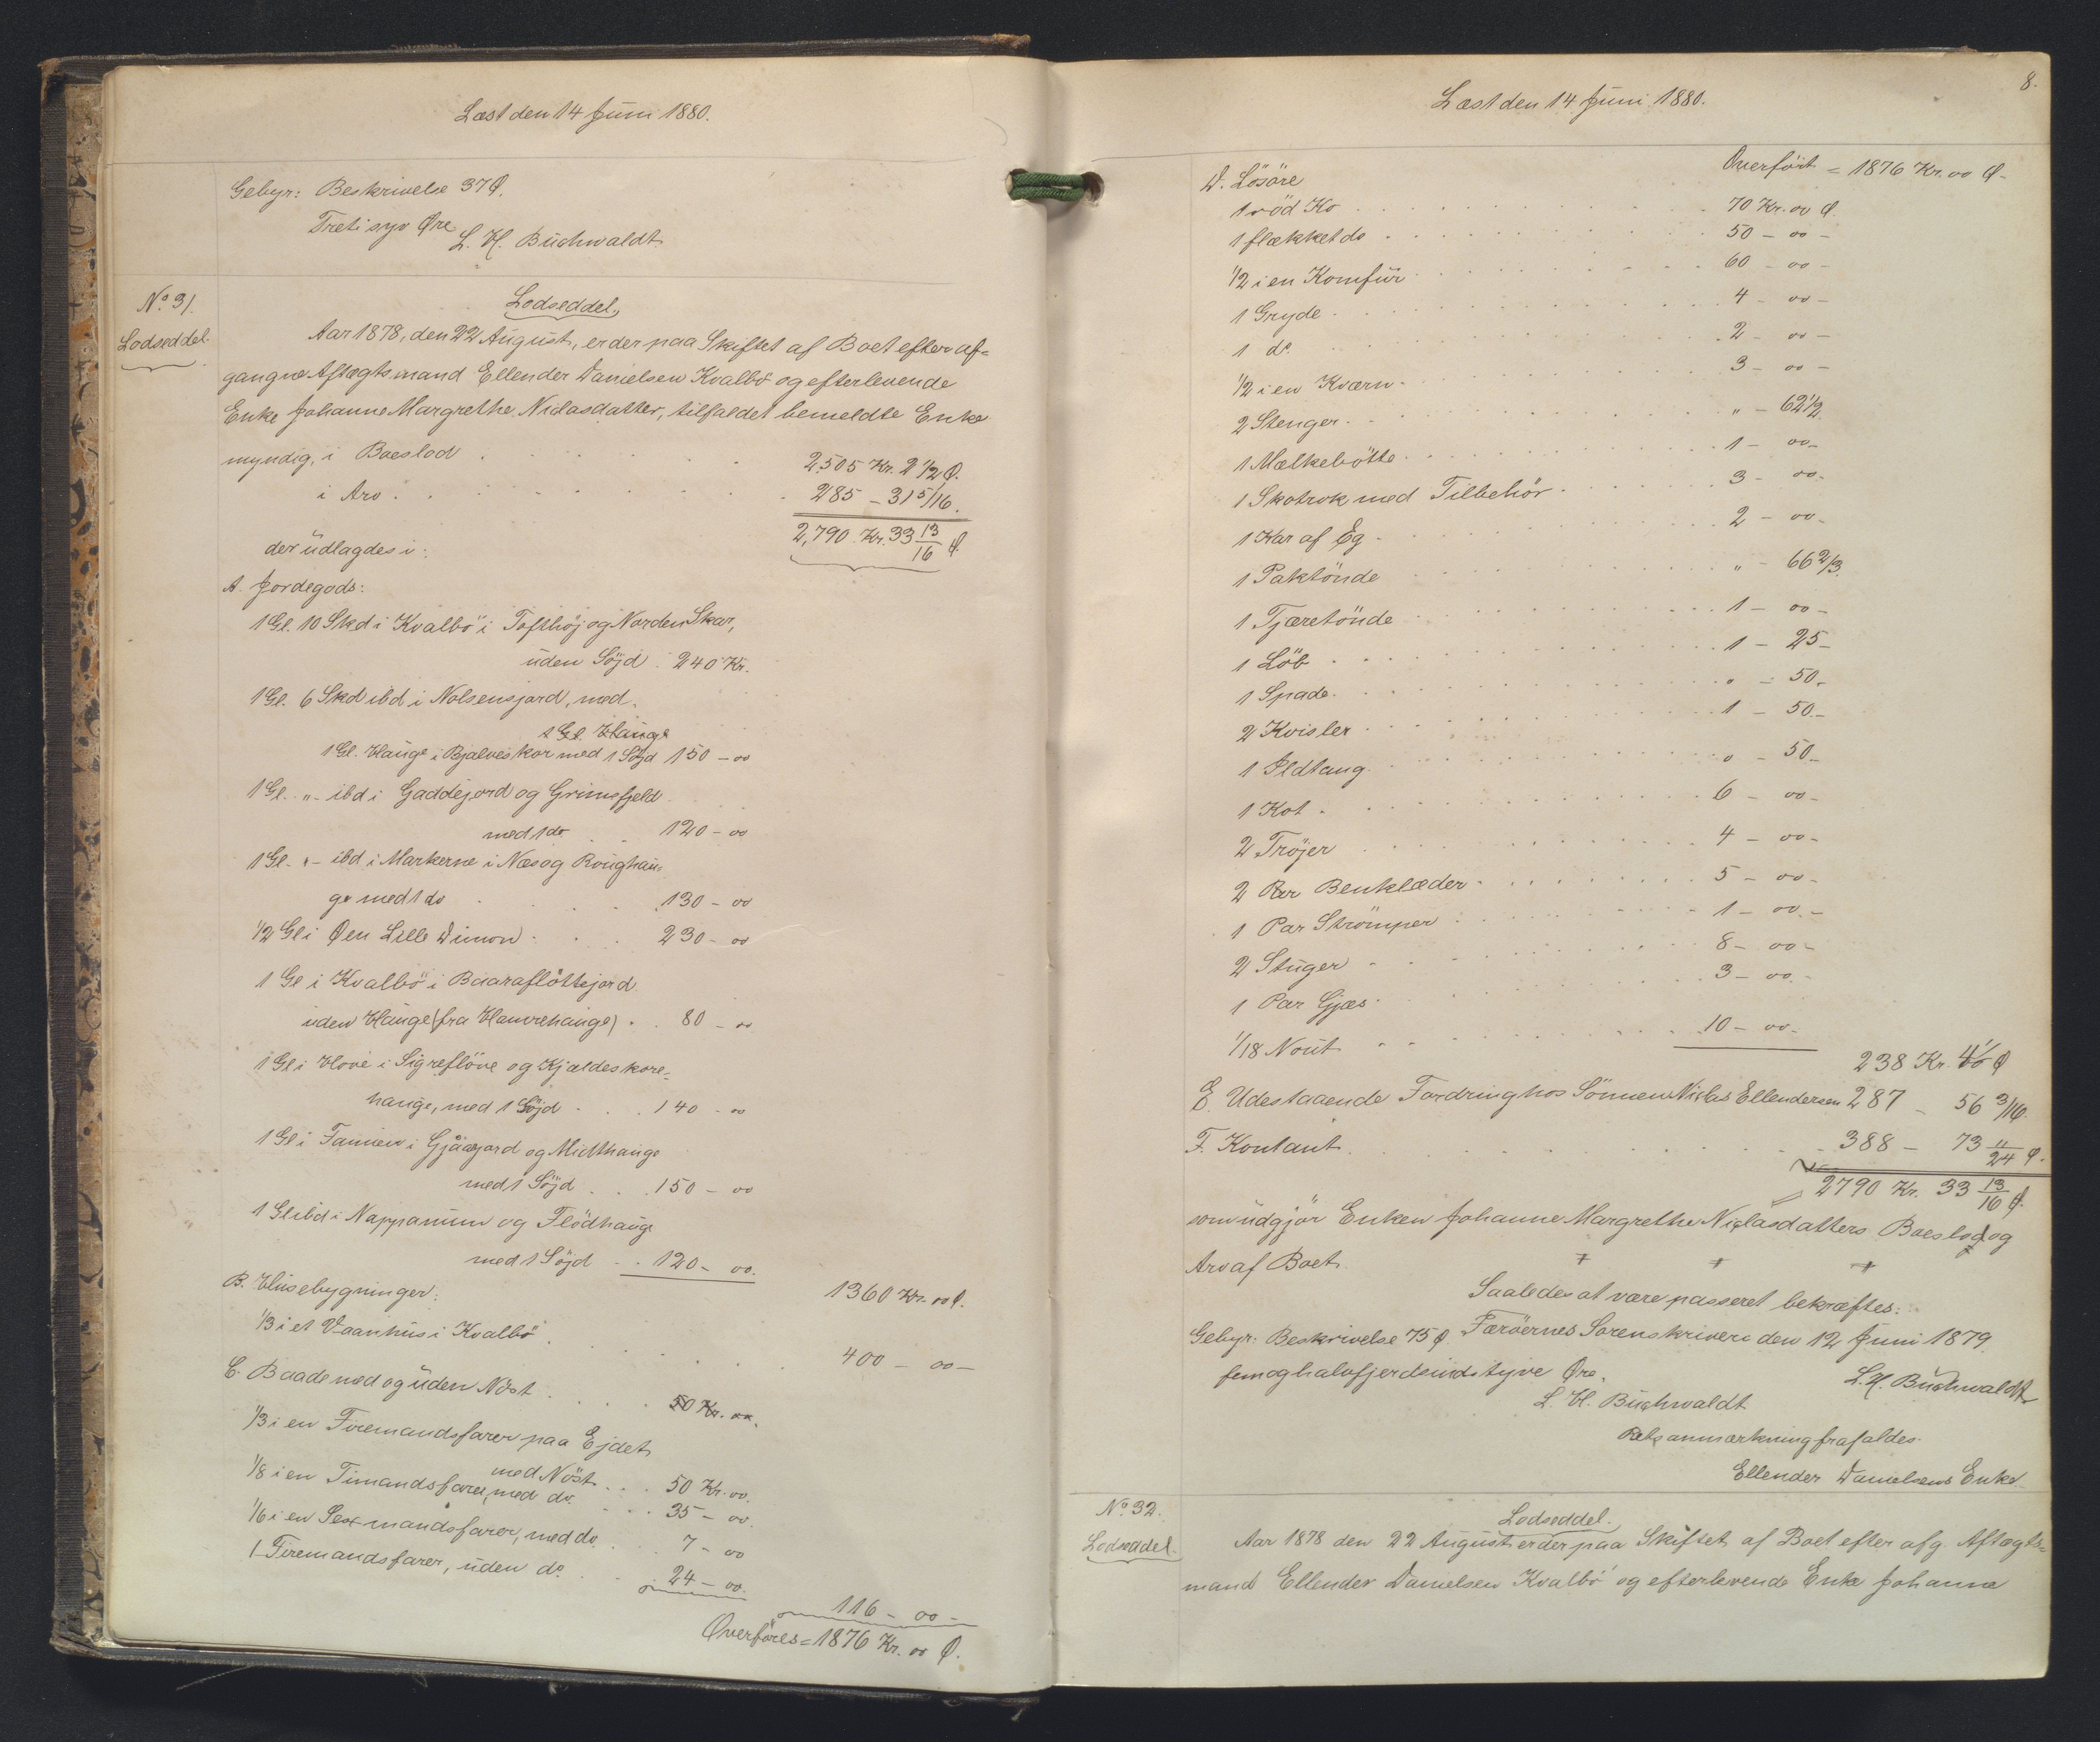 Læst den 14 Juni 1880.
Gebyr: Beskrivelse 37 Ø.
Treti syv Øre
L. H. Buchwaldt
No. 31.
Lodseddel.
Lodseddel.
Aar 1878, den 22 August, er der paa Skiftet af Boet efter af-
gangne Aftægtsmand Ellender Danielsen Kvalbö og efterlevende
Enke Johanne Margrethe Niclasdatter, tilfaldet bemeldte Enke
myndig, i Boeslod . . . 2,505 Kr. 2 1/2 Ø.
i Arv . . . 285 – 31 5/16.
2,790 Kr. 33 13/16 Ø
der udlagdes i:
A. Jordegods:
1 Gl. 10 Skd i Kvalbö i Tofthöj og Norden Skar,
uden Söjd . 240 Kr.
1 Gl. 6 Skd ibd i Nolsensjord, med
1 Gl. Hauge
1 Gl. Hauge i Bjalveskor med 1 Söjd 150 – 00
1 Gl. „ – ibd i Gaddejord og Grimsfjeld
med 1 do . . 120 – 00
1 Gl. „ – ibd i Markerne i Næs og Roughau-
ge med 1 do . . . 130 – 00
1/2 Gl i Øen Lille Dimon . . . 230 – 00
1 Gl i Kvalbö i Baaraflöttejord
uden Hauge (fra Hamrehauge) . . 80 – 00
1 Gl i Hove i Sigreflöve og Kjældeskore-
hauge, med 1 Söjd . . . 140 – 00
1 Gl i Famien i Gjåajord og Midthauge
med 1 Söjd . . . 150 – 00
1 Gl ibd i Nappanum og Flödhauge
med 1 Söjd . . 120 – 00.
1360 Kr. 00 Ø.
B. Husebygninger:
1/3 i et Vaanhus i Kvalbö . . . 400 – 00 –
C. Baade med og uden Nöst . . . 50 Kr. 00.
1/3 i en Firemandsfarer paa Ejdet
med Nöst . . . 50 Kr. 00.
1/8 i en Timandsfarer, med do. . . . 35 – 00.
1/6 i en Sexmandsfarer, med do . . . 7 – 00
1 Firemandsfarer, uden do. . . . 24 – 00.
116 – 00 –
Overföres = 1876 Kr. 00 Ø.
8.
Læst den 14 Juni 1880.
Overfört = 1876 Kr. 00 Ø –
D. Lösöre
1 röd Ko . . . 70 Kr. 00 Ø.
1 flækket do . . . 50 – 00 –
1/2 i en Komfur . . . 60 – 00 –
1 Gryde . . . 4 – 00 –
1 do. . . . 2 – 00 –
1/2 i en Kværn . . . 3 – 00 –
2 Stenger . . . „ – 62 1/2.
1 Mælkebötte . . . 1 – 00 –
1 Skotrok med Tilbehör . . . 3 – 00 –
1 Kar af Eg . . . 2 – 00 –
1 Paktönde . . . „ – 66 2/3.
1 Tjæretönde . . . 1 – 00 –
1 Löb . . . 1 – 25 –
1 Spade . . . „ – 50 –
2 Kvisler . . . 1 – 50 –
1 Ildtang . . . „ – 50 –
1 Kot . . . 6 – 00 –
2 Tröjer . . . 4 – 00 –
2 Par Benklæder . . . 5 – 00 –
1 Par Strömper . . . 1 – 00 –
2 Stuger . . . 8 – 00 –
1 Par Gjæs . . . 3 – 00 –
1/18 Nout . . . 10 – 00 –
238 Kr. Ø
E. Udestaaende Fordring hos Sönnen Niclas Ellendersen 287 – 56 3/16.
F. Kontant . . . 388 – 73 11/24 Ø.
2790 Kr. 33 13/16 Ø.
som udgjör Enken Johanne Margrethe Niclasdatters Boeslod og
Arv af Boet.
Saaledes at være passeret bekræftes.
Gebyr: Beskrivelse 75 Ø
Færöernes Sorenskriveri den 12 Juni 1879.
femoghalvfjerdsindstyve Øre.
L. H. Buchwaldt
L. H. Buchwaldt
Retsanmærkning frafaldes.
Ellender Danielsens Enke
No. 32.
Lodseddel.
Lodseddel.
Aar 1878 den 22 August er der paa Skiftet af Boet efter afg. Aftægts-
mand Ellender Danielsen Kvalbö og efterlevende Enke Johanne